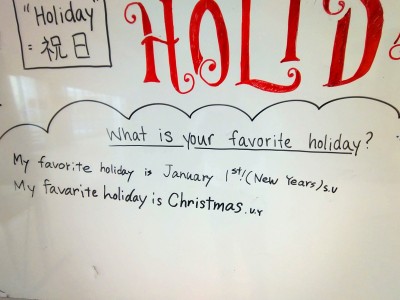 "Holiday"
= 祝日
HOLID
What is your favorite holiday?
My favorite holiday is January 1st! (New Years) S.U
My favarite holiday is Christmas. u.r